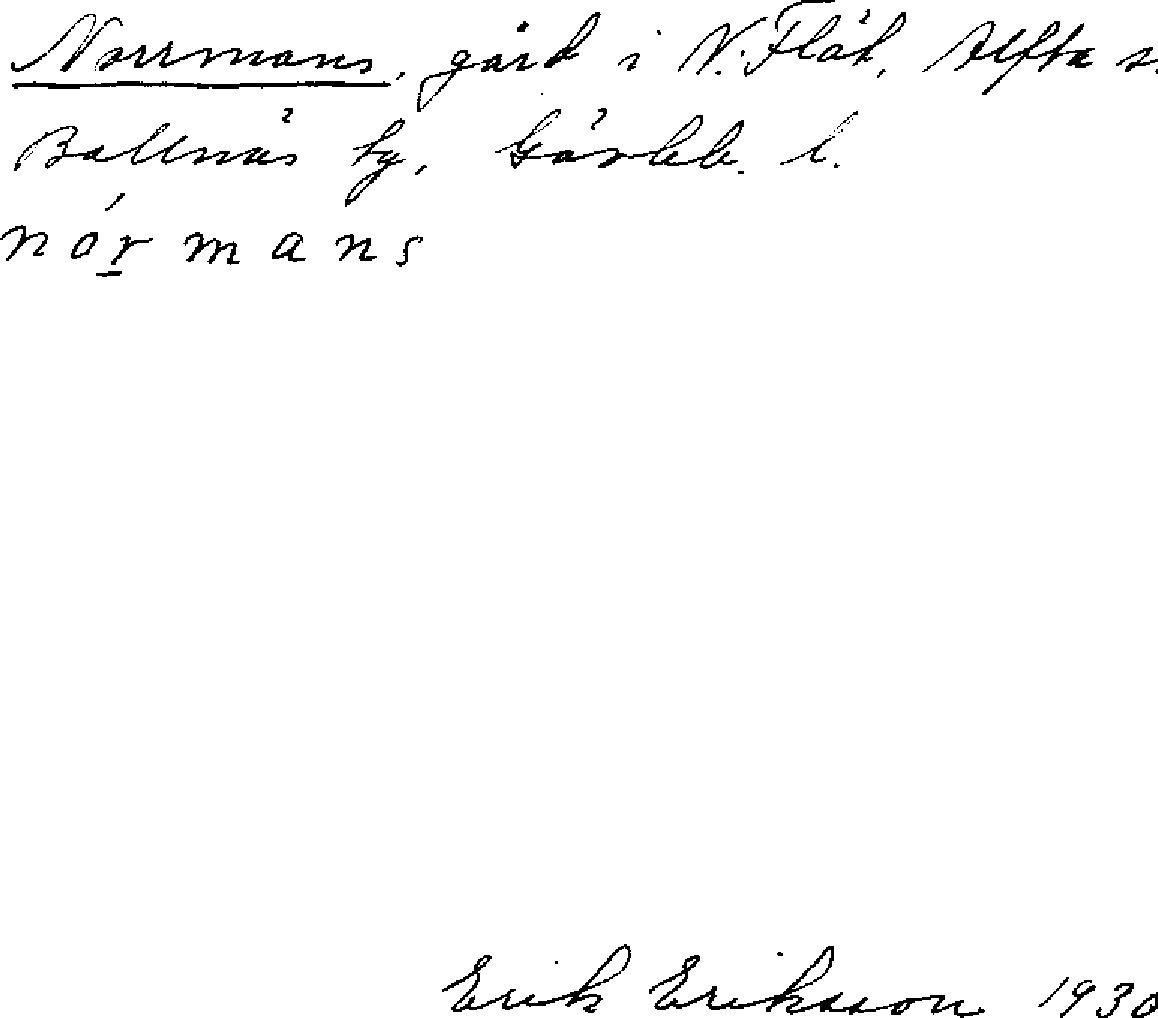 Norrmans, gård i N. Flät, Alfta s.
Bollnäs tg, Gävleb. l.
nórmans
Erik Eriksson 1930